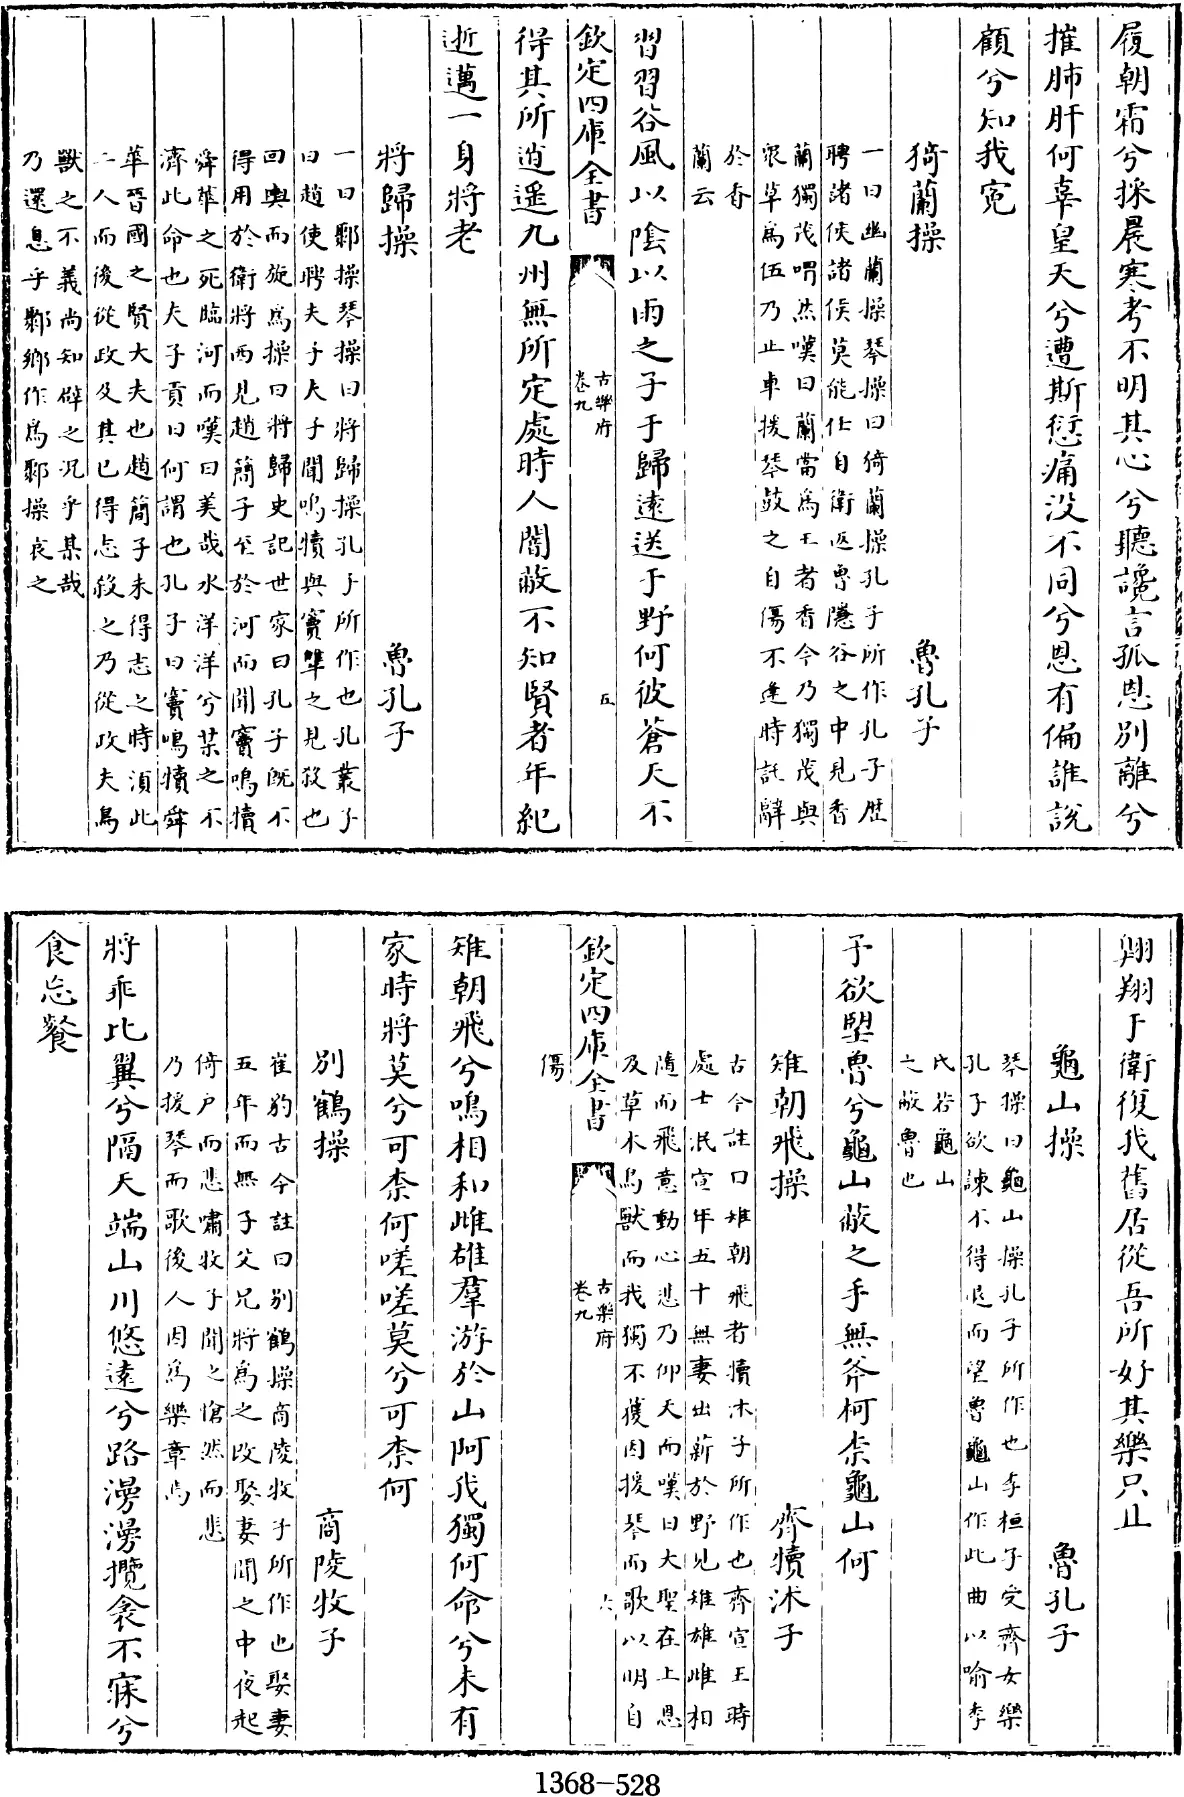 履朝霜兮採晨寒考不明其心兮聽讒言孤恩別離兮
摧肺肝何辜皇天兮遭斯愆痛没不同兮恩有偏誰說
顧兮知我寃
猗蘭操　魯孔子
一曰幽蘭操琴操曰猗蘭操孔子所作孔子歴
聘諸侯諸侯莫能仕自衛返魯隱谷之中見香
蘭獨茂喟然嘆曰蘭當為王者香今乃獨茂與
衆草為伍乃止車援琴鼓之自傷不逢時託辭
於香
蘭云
習習谷風以隂以雨之子于歸逺送于野何彼蒼天不
欽定四庫全書
古樂府
卷九
五
得其所逍遥九州無所定處時人闇蔽不知賢者年紀
逝邁一身將老
將歸操　魯孔子
一曰鄹操琴操曰將歸操孔子所作也孔叢子
曰趙使聘夫子夫子聞鳴犢與竇犨之見殺也
回輿而旋為操曰將歸史記世家曰孔子既不
得用於衛將西見趙簡子至於河而聞竇鳴犢
舜華之死臨河而嘆曰美哉水洋洋兮某之不
濟此命也夫子貢曰何謂也孔子曰竇鳴犢舜
華晉國之賢大夫也趙簡子未得志之時須此
二人而後從政及其已得志殺之乃從政夫鳥
獸之不義尚知辟之況乎某哉
乃還息乎鄹鄉作為鄹操哀之
翺翔于衛復我舊居從吾所好其樂只止
龜山操　魯孔子
琴操曰龜山操孔子所作也季桓子受齊女樂
孔子欲諫不得退而望魯龜山作此曲以喻季
氏若龜山
之蔽魯也
予欲望魯兮龜山蔽之手無斧柯柰龜山何
雉朝飛操　齊犢沐子
古今註曰雉朝飛者犢沐子所作也齊宣王時
處士泯宣年五十無妻出薪於野見雉雄雌相
隨而飛意動心悲乃仰天而嘆曰大聖在上恩
及草木鳥獸而我獨不獲因援琴而歌以明自
欽定四庫全書
古樂府
卷九
六
傷
雉朝飛兮鳴相和雌雄羣游於山阿我獨何命兮未有
家時將莫兮可柰何嗟嗟莫兮可柰何
別鶴操　商陵牧子
崔豹古今註曰別鶴操商陵牧子所作也娶妻
五年而無子父兄將為之改娶妻聞之中夜起
倚户而悲嘯牧子聞之愴然而悲
乃援琴而歌後人因為樂章焉
將乖比翼兮隔天端山川悠逺兮路漫漫攬衾不寐兮
食忘餐
1368-528